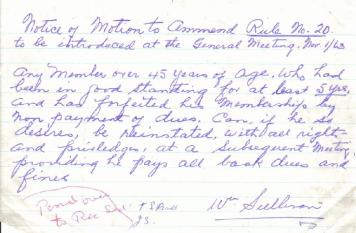 Notice of Motion to Ammend Rule No. 20.
to be introduced at the General Meeting, Nov. 1/63
Any Member over 45 years of age, who had
been in good standing for at least 5 yrs,
and has forfeited his Membership by
non payment of dues. Can, if he so
desires, be reinstated, with all rights
and priviledges, at a subsequent Meeting,
providing he pays all back dues and
fines
to Rec Sec.
Wm Sullivan